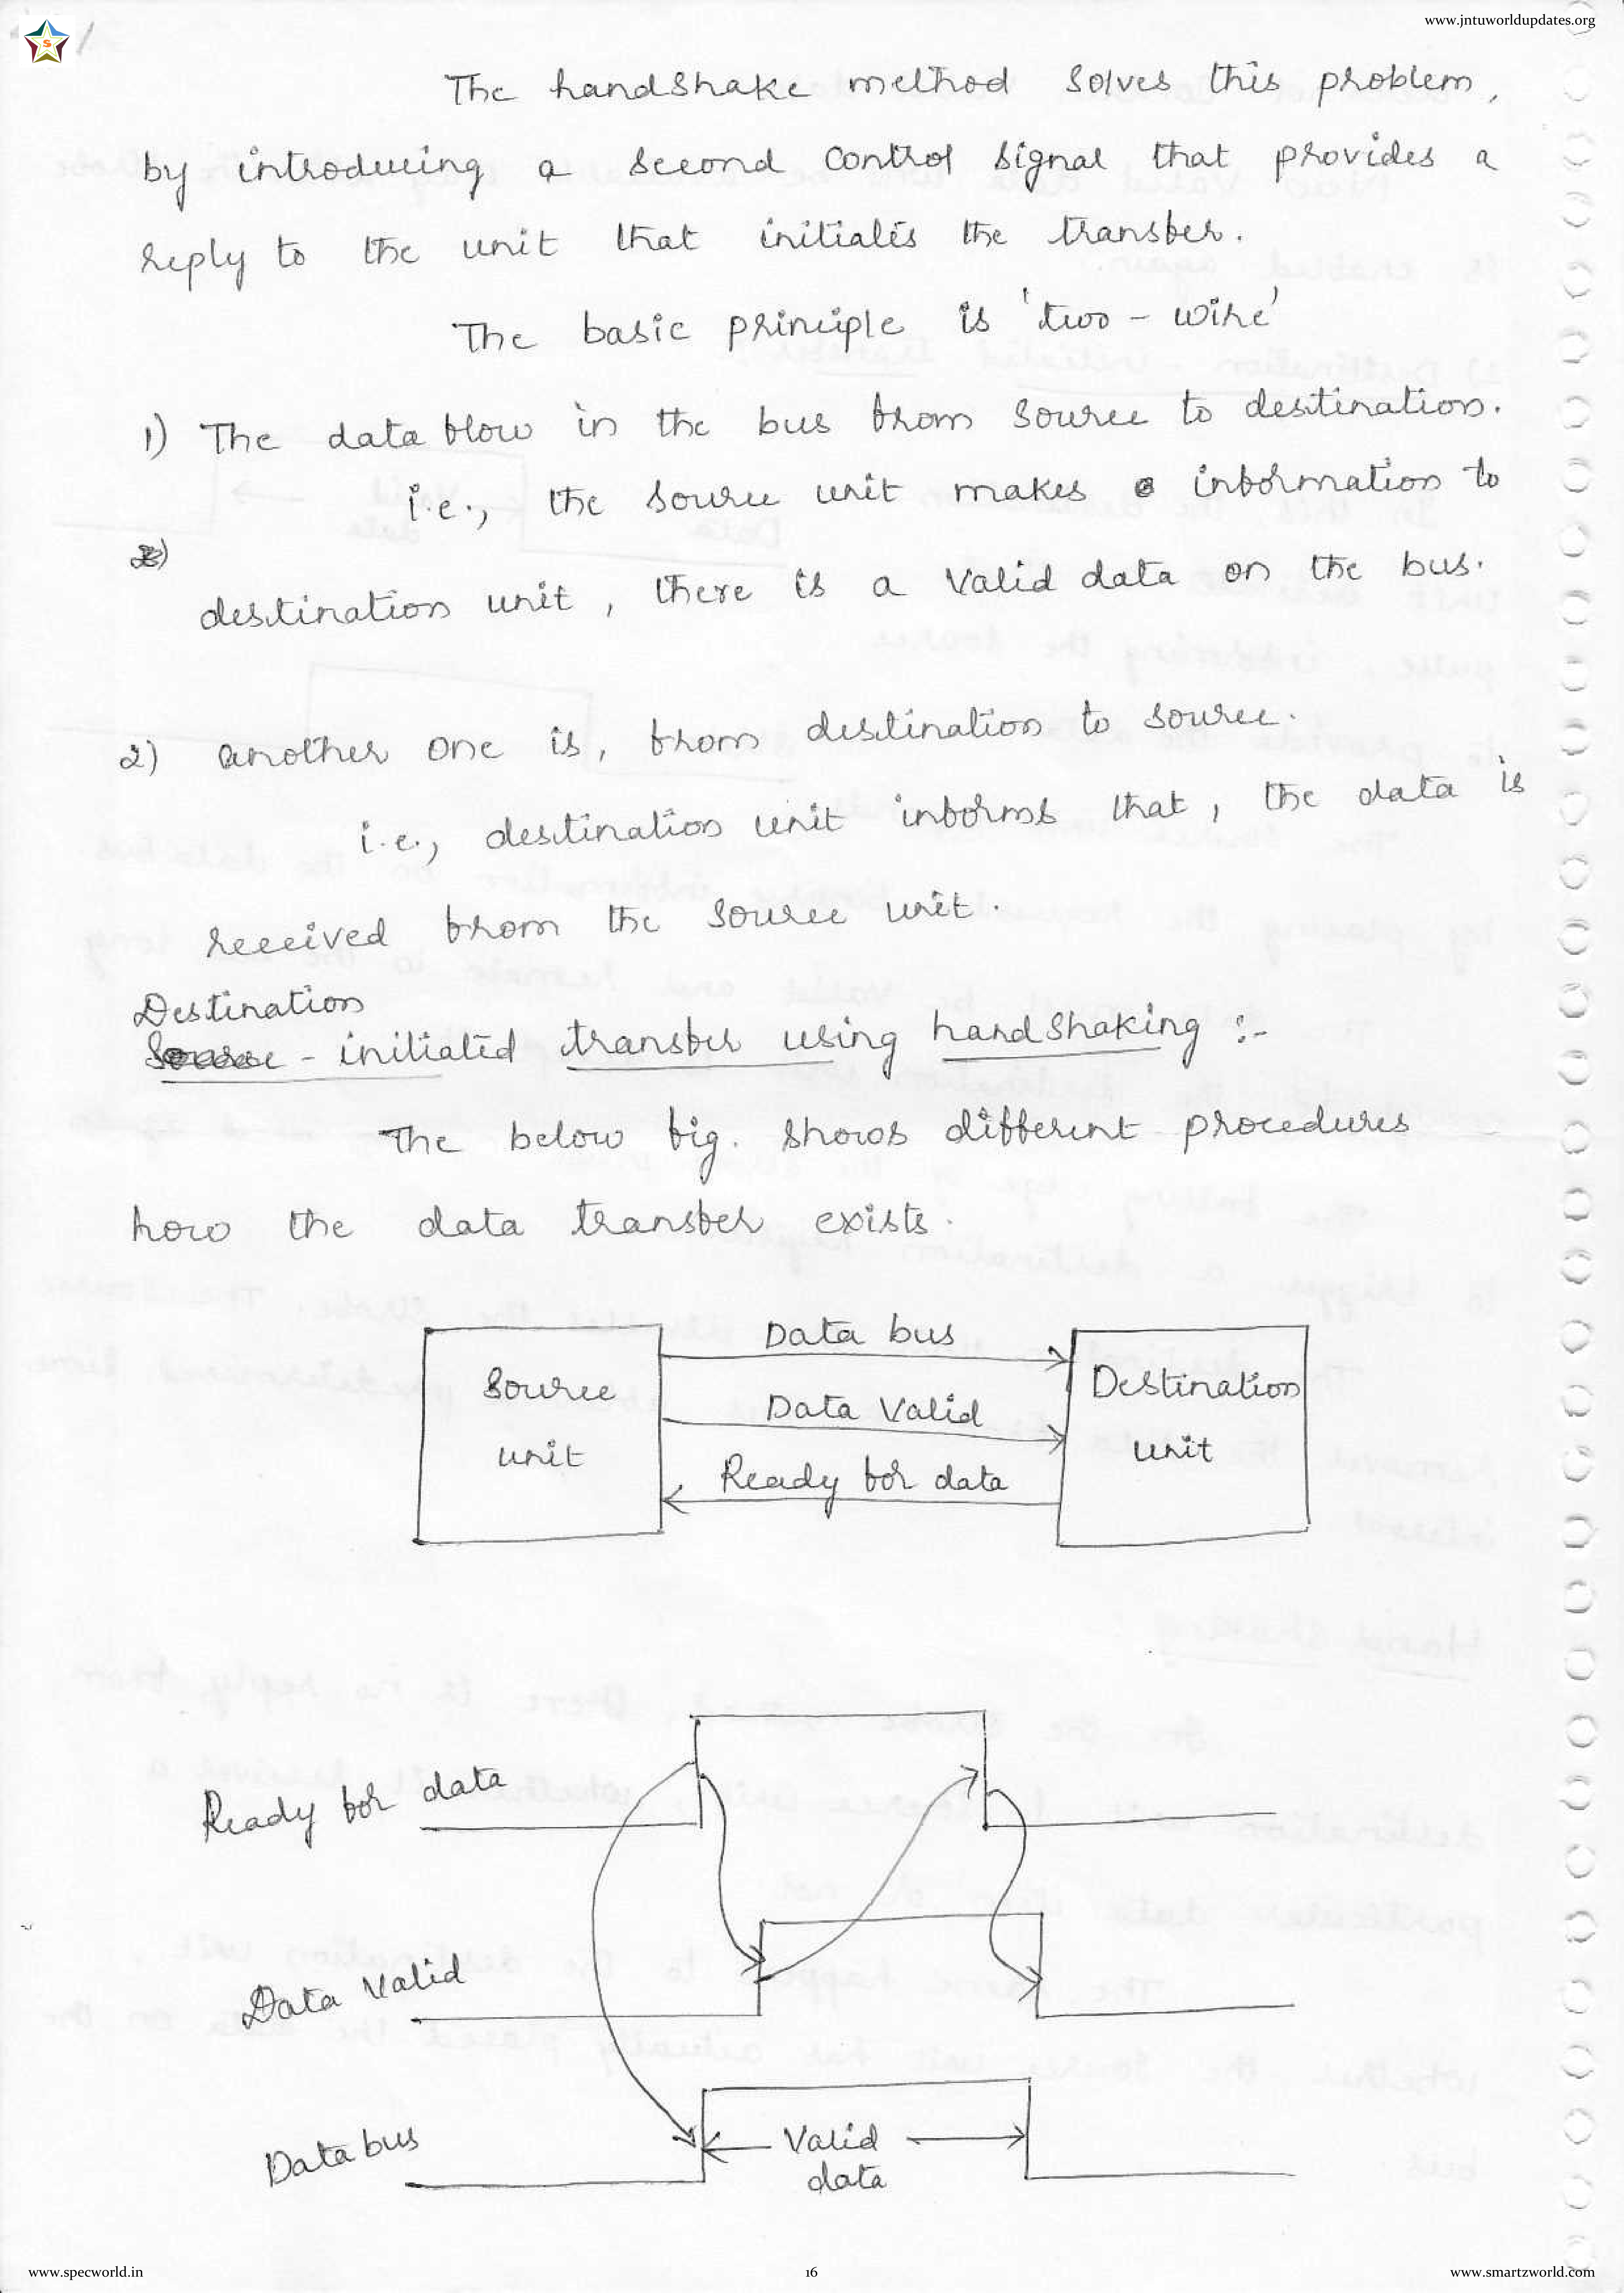 www.jntuworldupdates.org
S
The handshake method solves this problem,
by introducing a second control signal that provides a
reply to the unit that initiates the transfer.
The basic principle is 'two-wire'
1) The data flow in the bus from source to destination.
i.e., the source unit makes a information to
destination unit, there is a valid data on the bus.
2) another one is, from destination to source.
i.e., destination unit informs that, the data is
received from the source unit.
Destination
Source - initiated transfer using handshaking :-
The below fig. shows different procedures
how the data transfer exists.
Data bus
Source
unit
Data Valid
Destination
unit
Ready for data
Ready for data
Data Valid
Data bus
Valid
data
www.specworld.in
16
www.smartzworld.com